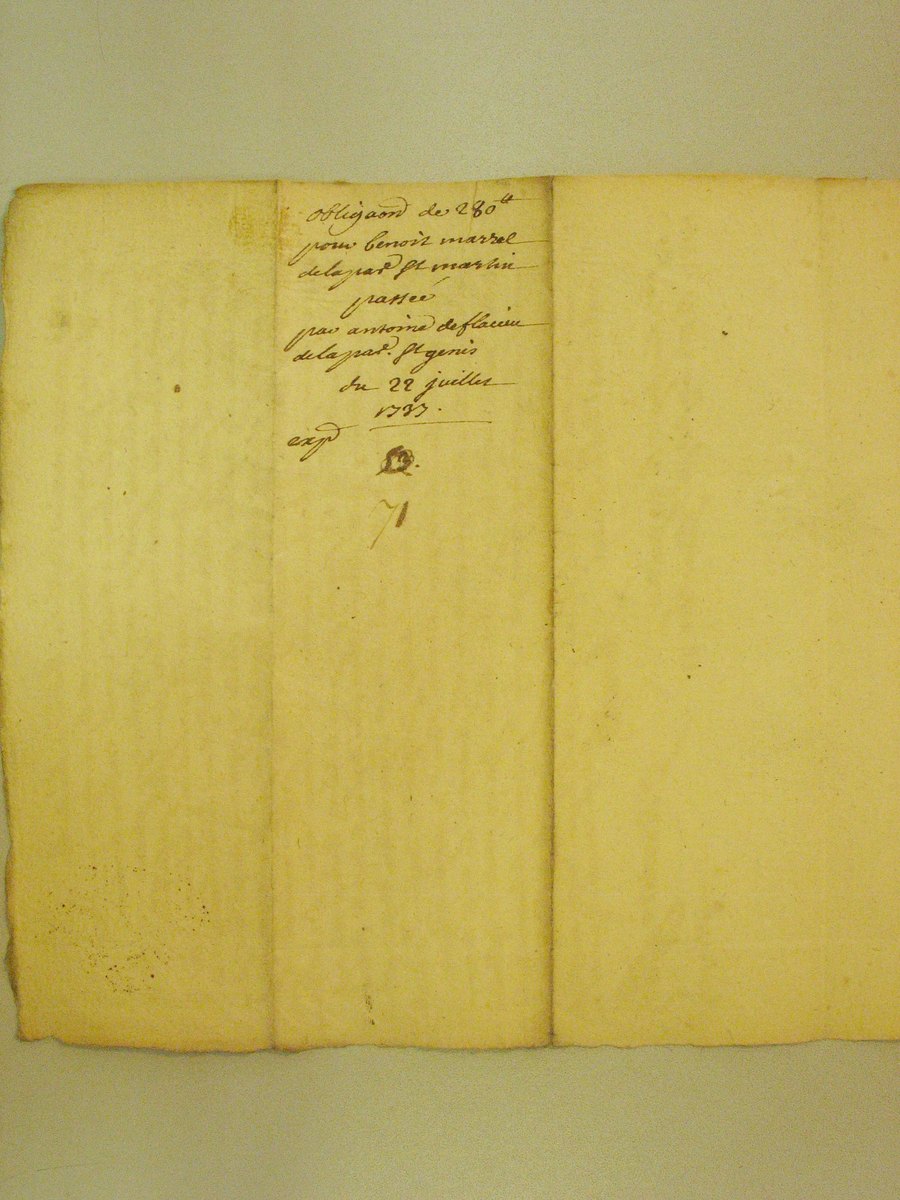 obligaõn de 280ᵗᵗ
pour benoit marrel
de la par.ᵉ St martin
passée
par antoine deflacieu
de la par.ᵉ St genis
du 22 juillet
1737.
exp.ᵈ
71